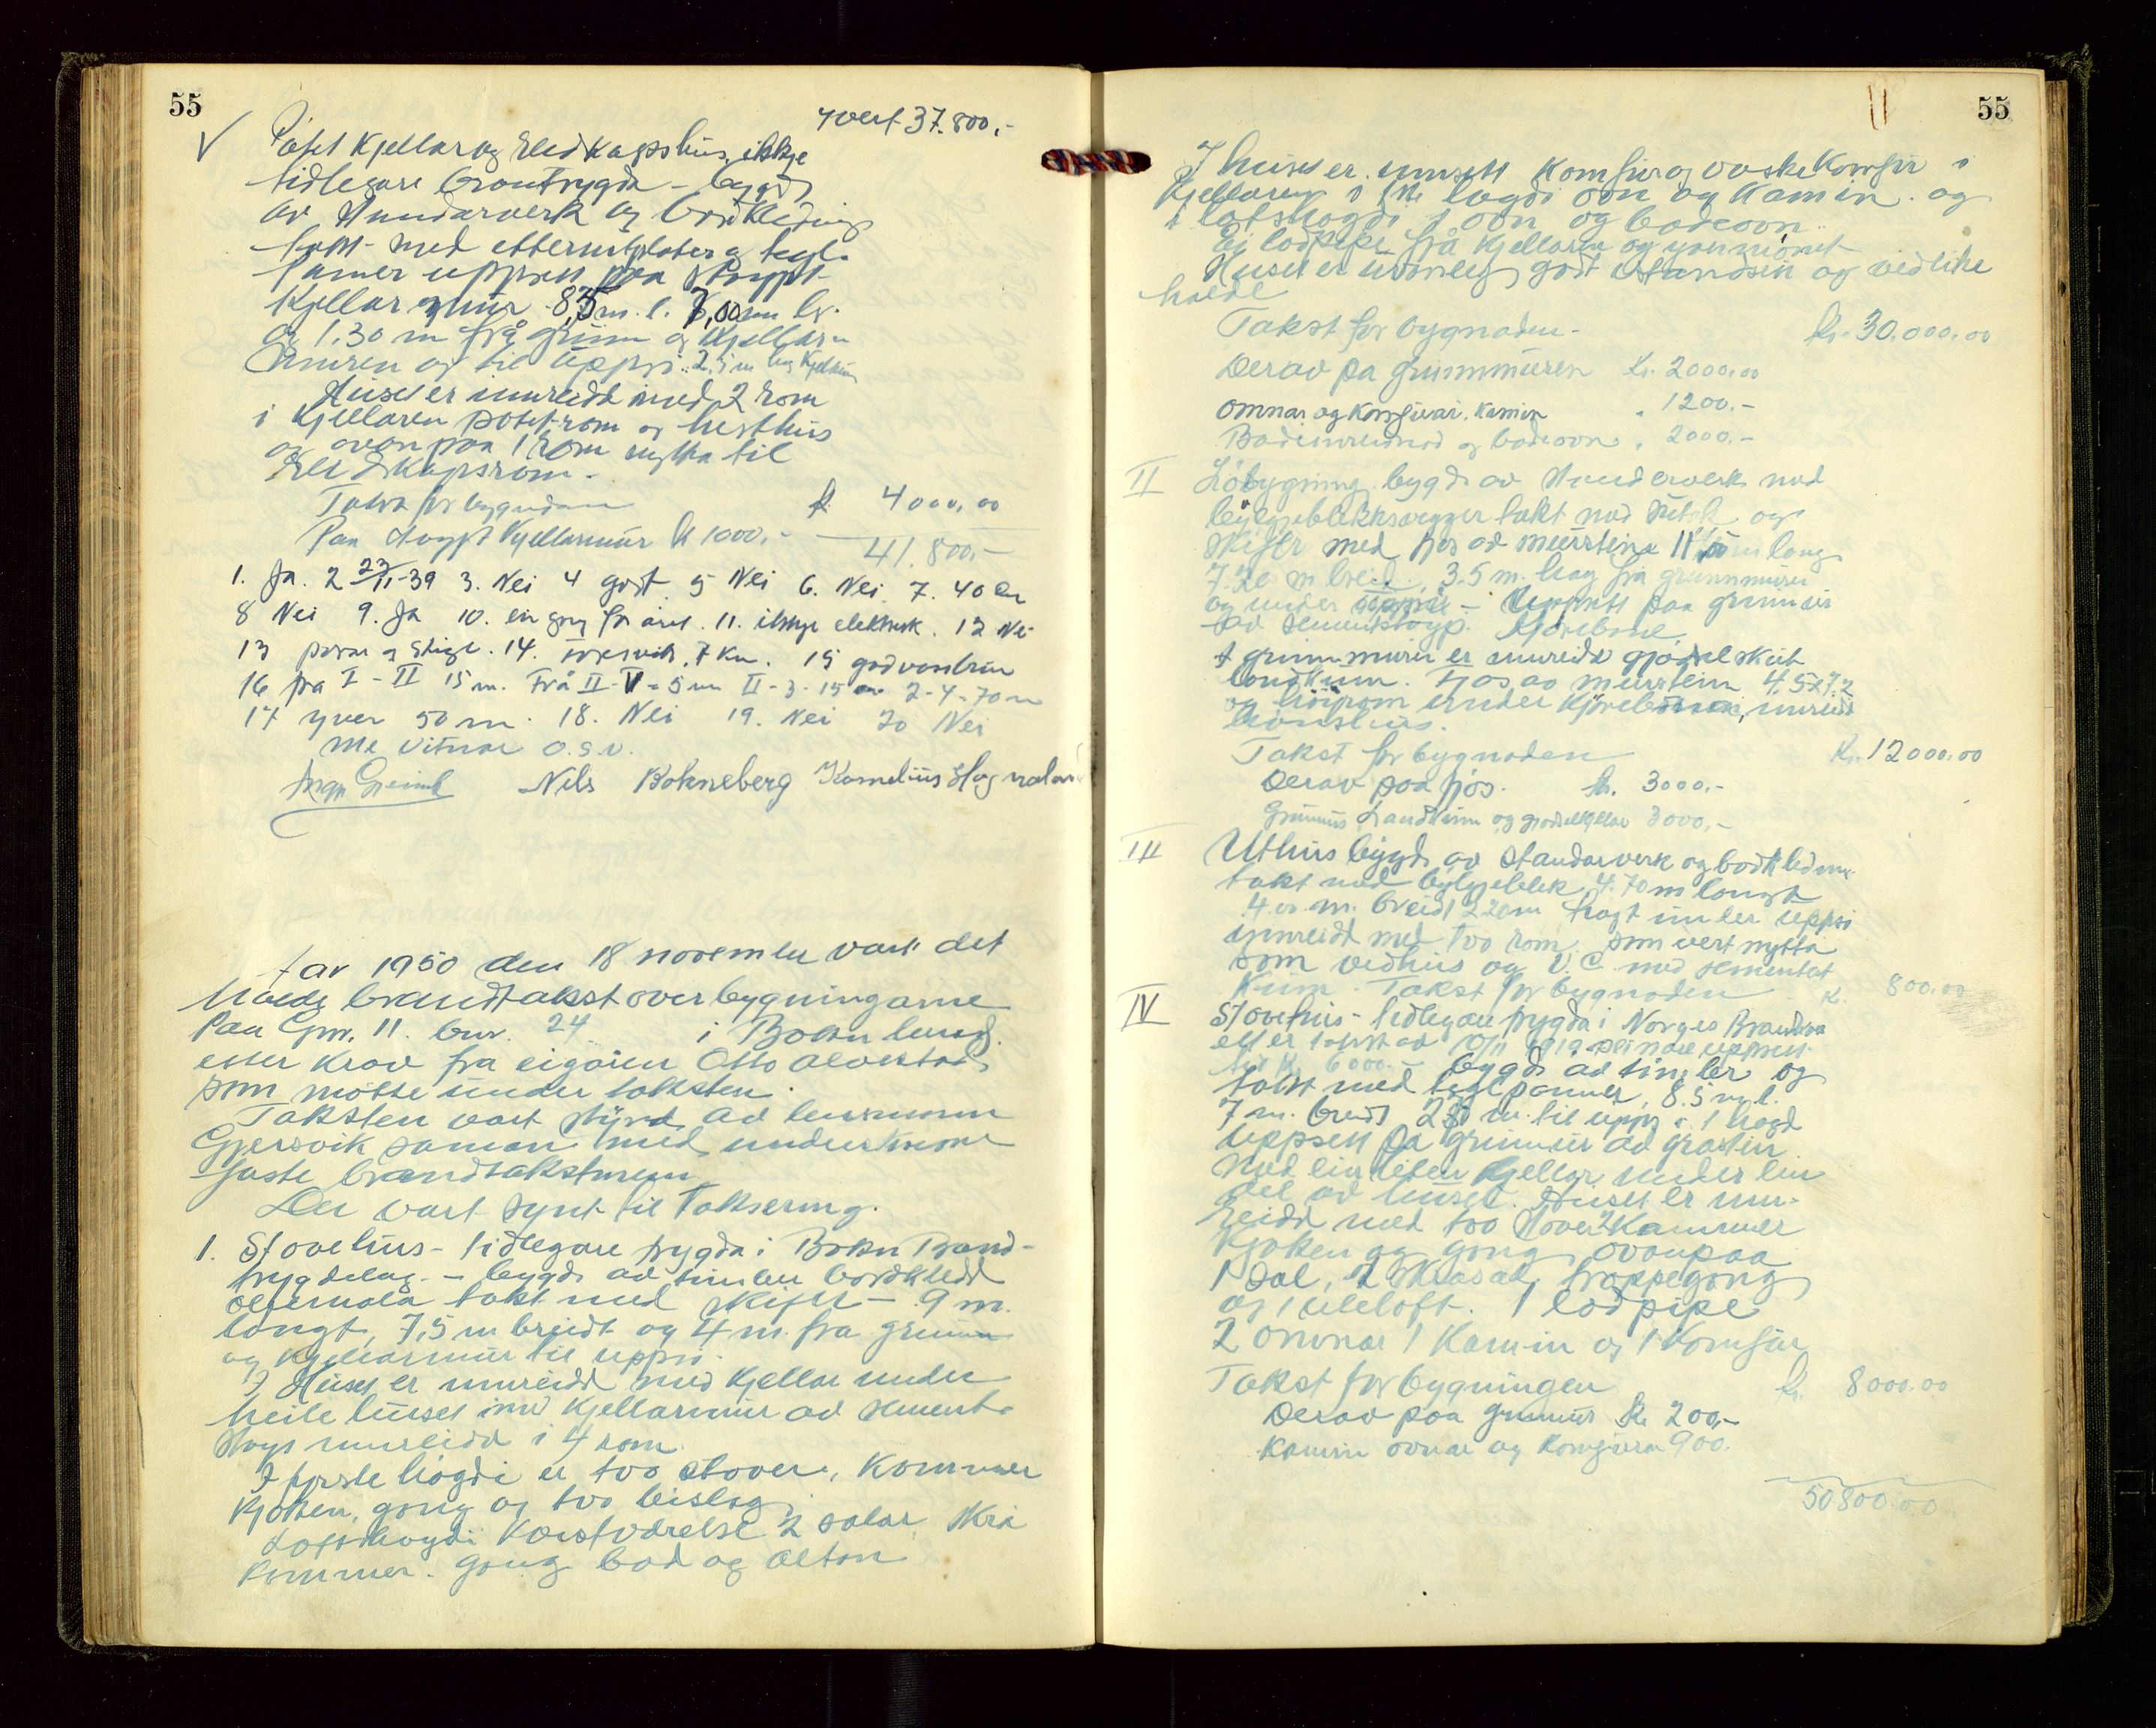 55
yvert 37.800,-
V Potet Kjellar og Reidskapshus, ikkje
tidlegare brantrygda - bygd
av Standarverk og bordkledning
tekt med etternitplater og tegl-
panner uppsett paa støypt
Kjellarmur 8,5 m. l. 7,00 m br.
og 1,30 m frå grunn og Kjellar
muren og til uppsi. 2,5 m
Huset er innreidt med 2 rom
i Kjellaren potetrom og hesthus
og ovanpaa 1 rom nytta til
Reidskapsrom.
Takst for bygnaden kr 4000,00
Paa støypt Kjellarmur kr 1000,-
41.800,-
1. Ja. 2 23/11-39 3. Nei 4 godt. 5 Nei 6. Nei. 7. 40 år
8 Nei 9. Ja 10. ein gong for året. 11. ikkje elektrisk. 12 Nei
13 pøsar og Stige. 14. 7 Km. 15 god vassbrun
16 fra I - II 15 m. Frå II-V = 5 m II-3-15 m 2-4-70 m
17 yver 50 m. 18. Nei 19. Nei 20 Nei
me vitnar o.s.v.
Nils Bokneberg Kornelius Hognaland
År 1950 den 18 november vart det
halde brandtakst over bygningarne
paa Gnr. 11. bnr. 24 i Bokn herad
etter Krav fra eigaren Otto Alvestad
som møtte under taksten.
Taksten vart styrd av lensmann
Gjersvik saman med underskrivne
faste brandtakstmenn
Der vart synt til Taksering.
1. Stovehus - tidlegare trygda i Bokn Brand-
trygdelag. - bygd av timber bordkledd
oljemala takt med skifer - 9 m.
langt, 7,5 m breidt og 4 m. fra grunn
og Kjellarmur til uppsi.
Huset er innreidd med Kjellar under
heile huset med Kjellarmur av sement-
støyp innreidd i 4 rom.
I fyrste høgdi er tvo stover, Kammer
Kjøken, gong og tvo bislag
Loftshøgdi Korstværelse 2 salar Kra
Kammer. gong bad og altan
55
I huset er innsett Komfur og vaskekomfur i
Kjellaren i 1ste høgdi ovn og Kamin. og
i loftshøgdi 1 ovn og badeovn.
Ei lodpipe frå Kjellaren og yver mønet
Huset er vanleg godt istandsett og vedlike
halde
Takst for bygnaden - kr. 30.000,00
Derav pa grunnmuren Kr. 2000,00
Omnar og Komfurar. Kamin " 1200.-
Badeinreidnad og badeovn " 2000.-
II Løbygning bygd av Standerverk med
bylgjeblekksvegger takt med og
Skifer med fjos av murstein 11 m lang
7.20 m breid, 3.5 m. høg fra grunnmuren
og under uppsi - Uppsett paa grunnmur
av sementstøyp. Kjørebrue
I grunnmuren er innreidd gjødselskut
landkum. Fjos av murstein 4.5x7.2
og høirom under Kjørebruen, innreidd
hønsehus.
Takst for bygnaden Kr. 12000.00
Derav paa fjos. kr. 3000.-
Grunmur, Landkum og gjødselkjellar 3000,-
III Uthus bygd av Standarverk og bordkledning
takt med bylgjeblek 4.70 m langt
4.00 m. breidt 2.20 m høgt under uppsi
innreidd med tvo rom, som vert nytta
som vedhus og V.C med sementert
Kum. Takst for bygnaden Kr. 800.00
IV Stovehus - tidlegare trygda i Norges Brandka
etter takst av 10/11 1919 seinare uppsett
til Kr 6000.- bygd av timber og
takt med teglpanner, 8.5 m l.
7 m. breidt 2,50 m. til uppsi. 1 høgd
uppsett på grunnmur av gråstein
med ein liten Kjellar under ein
del av huset. Huset er inn-
reidd med tvo stover 2 Kammer
Kjøken og gong, ovanpaa
1 sal, 2 trappegong
og 1 uteloft. 1 lodpipe
2 omnar 1 Kamin og 1 Komfur
Takst for bygningen Kr. 8000.00
Derav paa grunmur Kr 200,-
Kamin ovnar og Komfuren 900.
50800.00